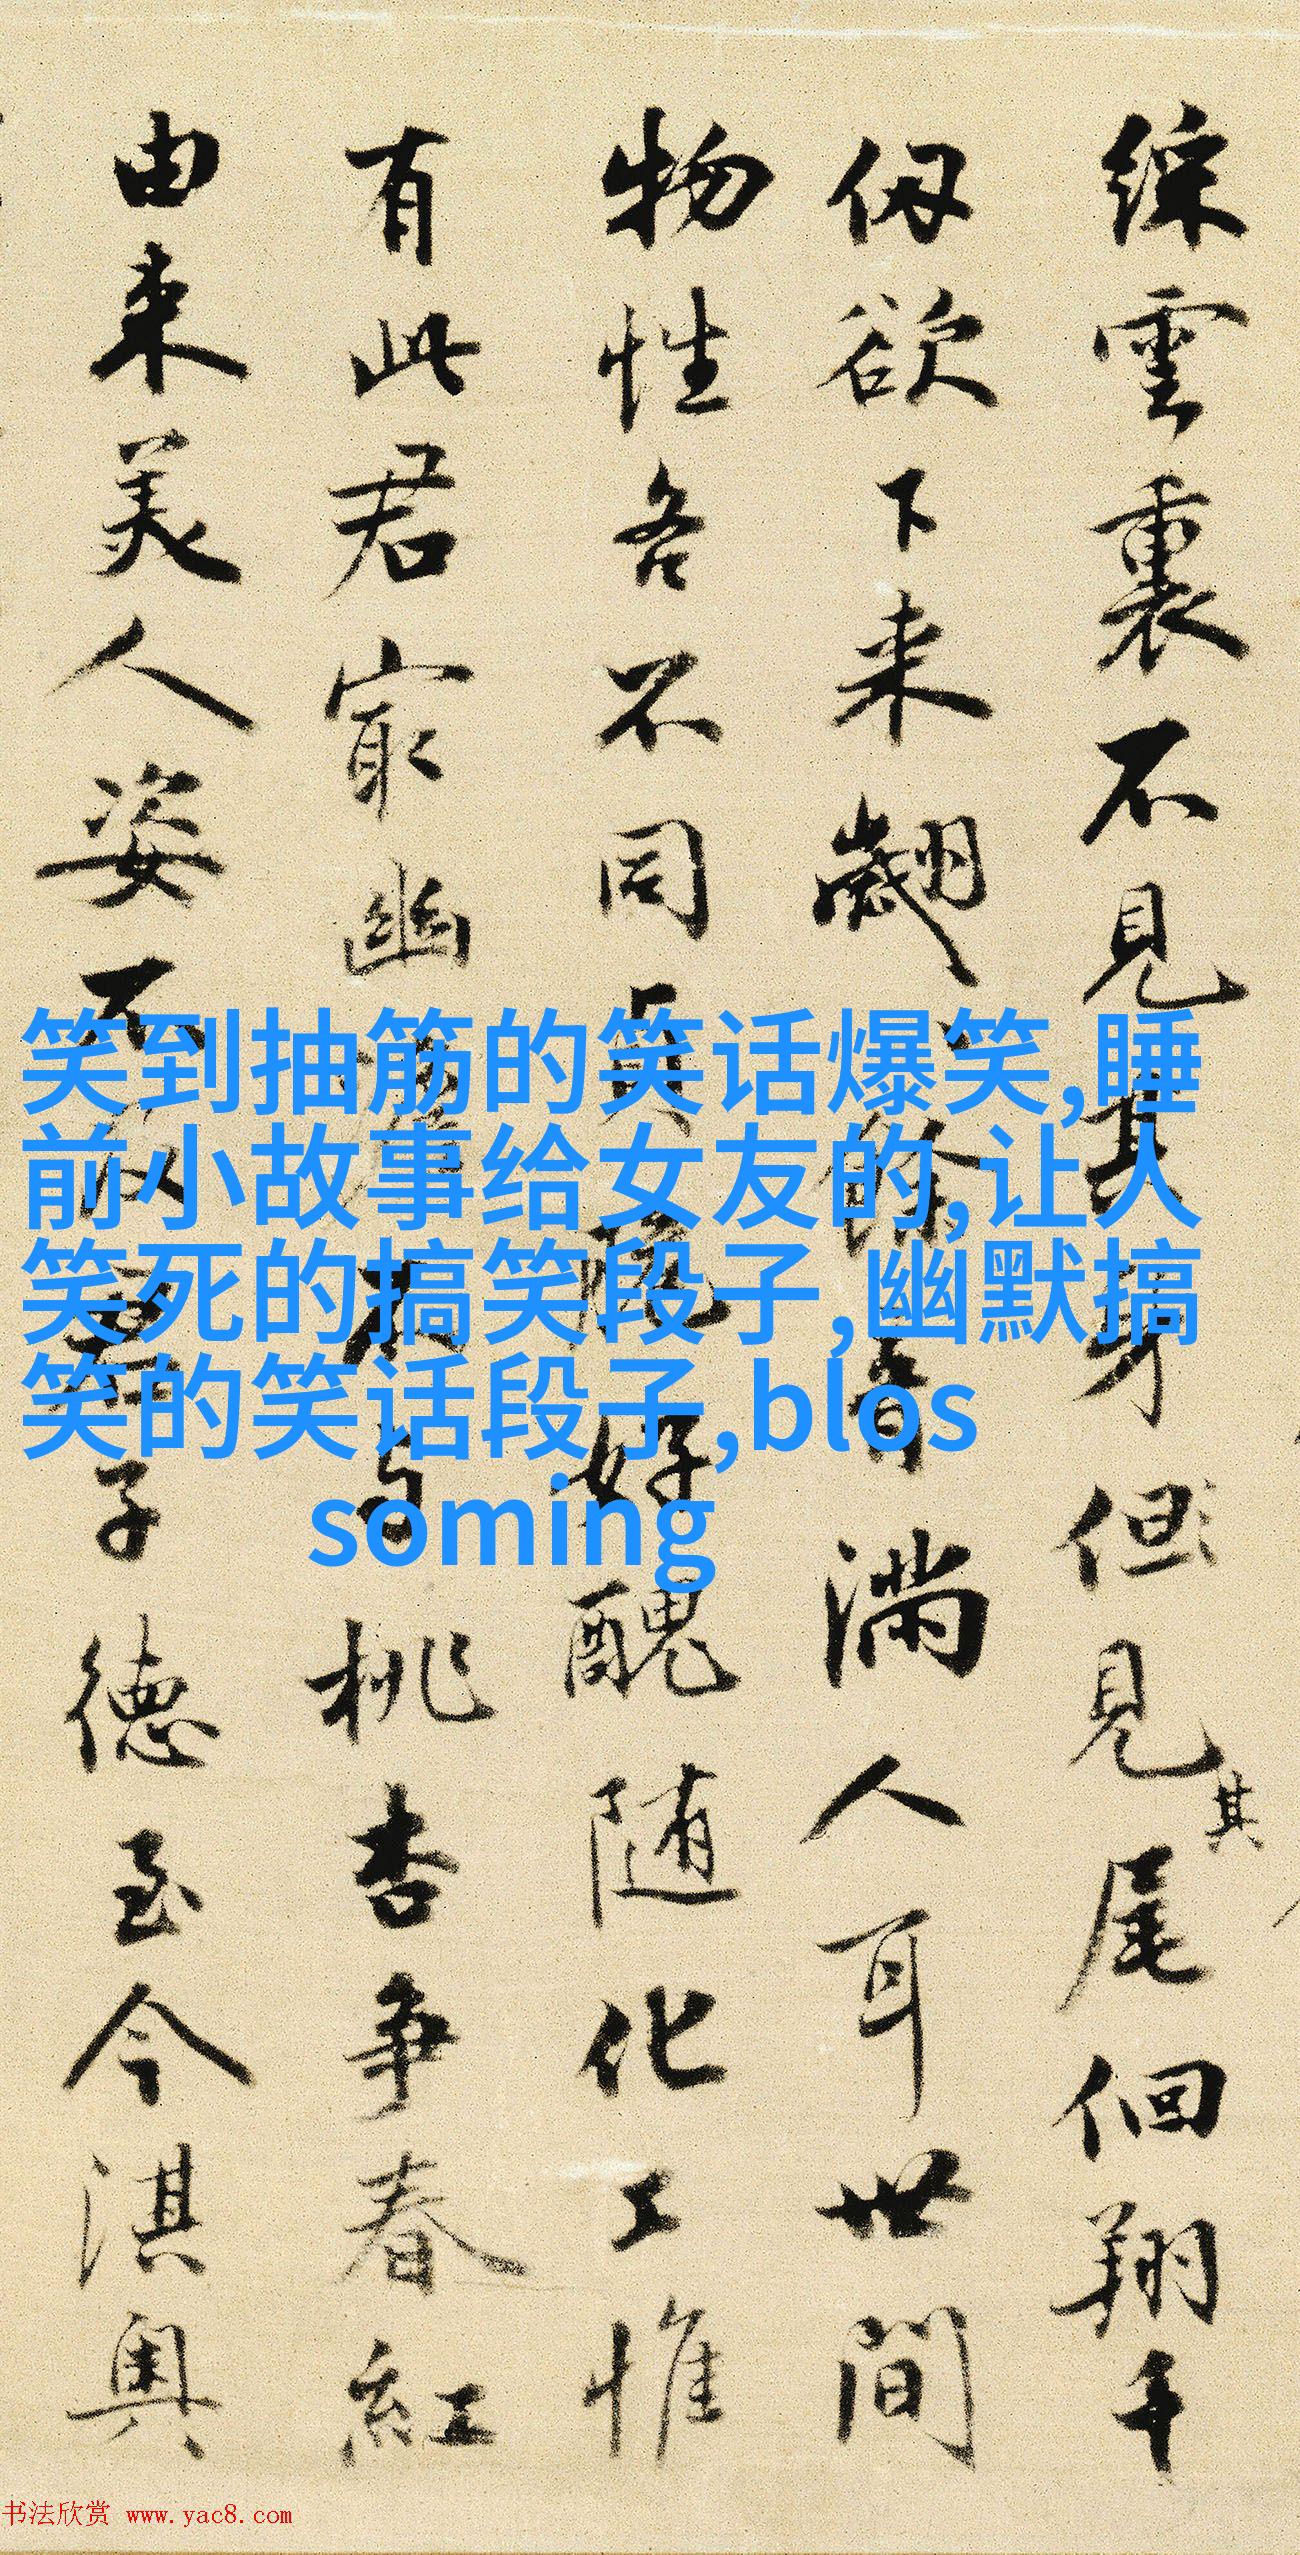 綵雲裏不見其身但見其尾佪翔千
仞欲下来翽餘音滿人耳世間
物性各不同好醜随化工惟
有此君寂幽与桃杏争春紅
由来美人姿不似君子德至今淇奥
笑到抽筋的笑话爆笑,睡
前小故事给女友的,让人
笑死的搞笑段子,幽默搞
笑的笑话段子,blos
soming
书法欣赏 www.yac8.com